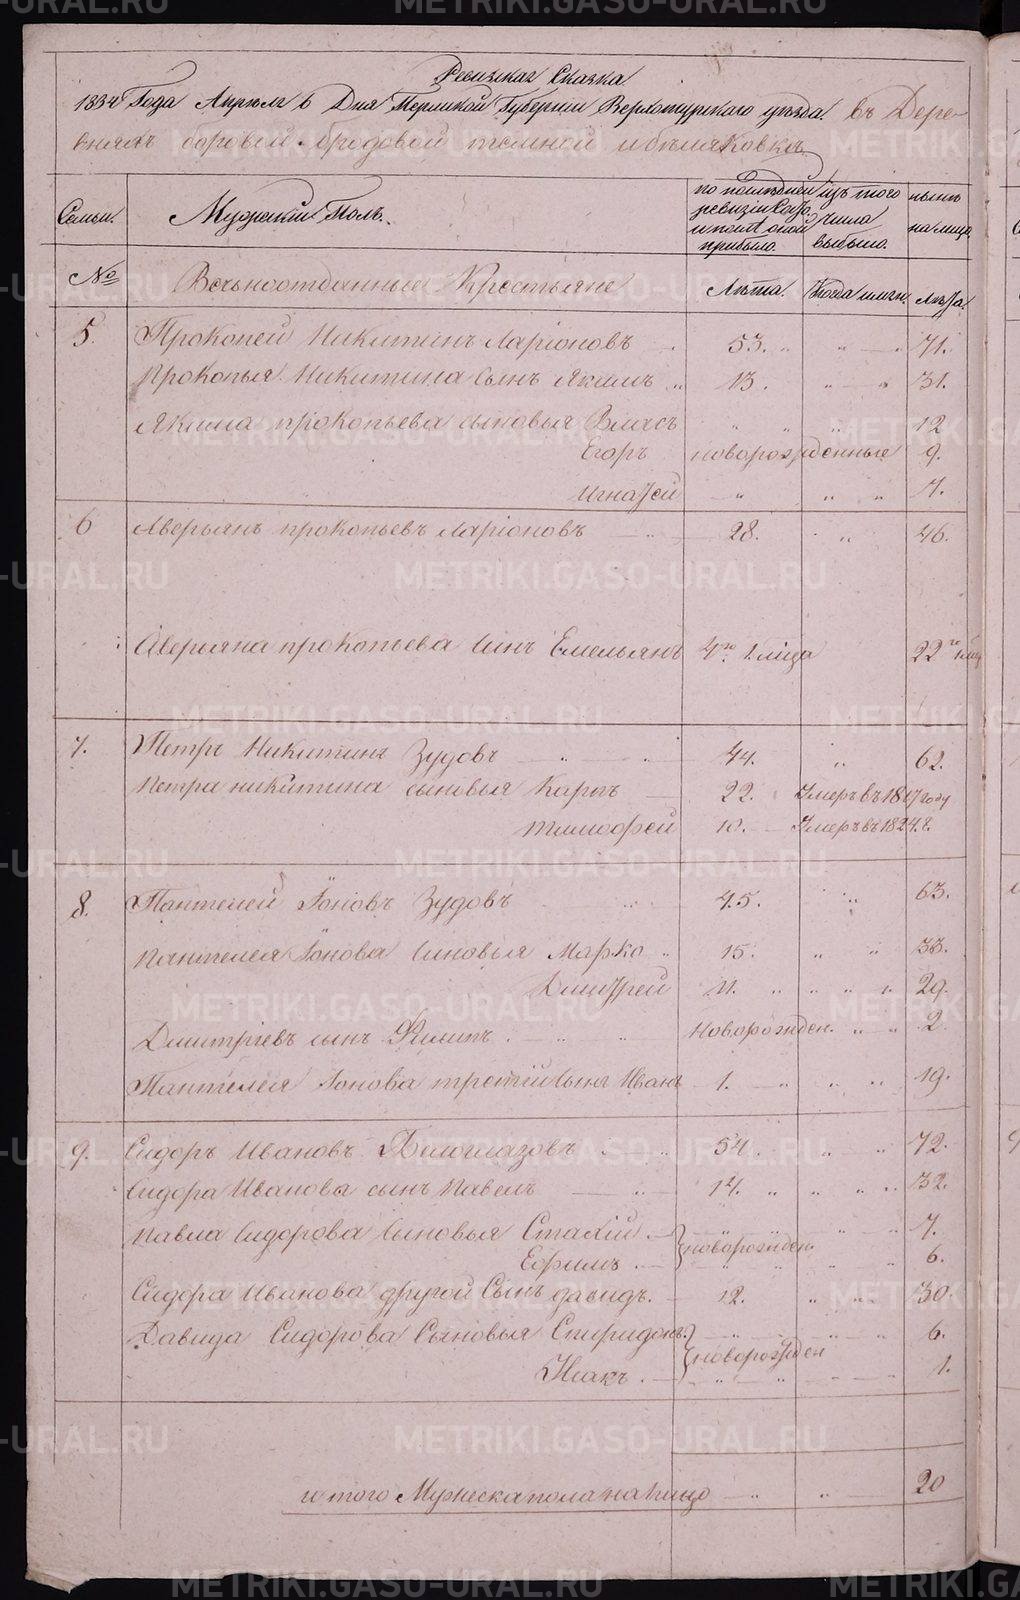 METRIKI.GASO-URAL.RU
Ревизская Сказка
1834 Года Апреля 6 Дня Пермской Губернии Верхотурского уезда въ Дере-
вняхъ боровой бродовой темной и беляковкѣ
Семьи. Мужескій Полъ. по последней ревизіи Состояло и после оной прибыло. Изъ того числа выбыло. ныне на лицо
№ Вечьноотданные Крестьяне Лѣта. Когда имянно. Лѣта.
5. Прокопей Никитинъ Ларіоновъ 53. " " 71.
Прокопья Никитина Сынъ Якимъ 13. " " 31.
Якима прокопьева сыновья Власъ " " " 12
Егоръ новорожденные 9.
Игнатей " " " 7.
6 Аверьянъ прокопьевъ Ларіоновъ 28. " 46.
Аверьяна прокопьева Сынъ Емельянъ 4го 1. лица 22го
7. Петръ Никитинъ Зудовъ 44. " 62.
Петра никитина сыновья Карпъ 22. Умеръ въ 1817 году
тимофей 10. Умеръ въ 1824. г.
8. Пантелей Іоновъ Зудовъ 45. " 63.
пантелея Іонова Сыновья Марко 15. " " 33.
Дмитрей 11. " " " " 29.
Дмитріевъ сынъ Филипъ новорожден. " " 2.
Пантелея Іонова третей Сынъ Иванъ 1. " " " 19.
9. Сидоръ Ивановъ Белоглазовъ 54. " " 72.
Сидора Иванова сынъ Павелъ 14. " " " " 32.
павла Сидорова Сыновья Стахій новорожден. 7.
Ефимъ " " " " 6.
Сидора Иванова другой Сынъ давидъ. 12. " " " 30.
Давида Сидорова Сыновья Спиридонъ новорожден 6.
Исакъ " " " 1.
и того Мужеска пола на лицо " " 20